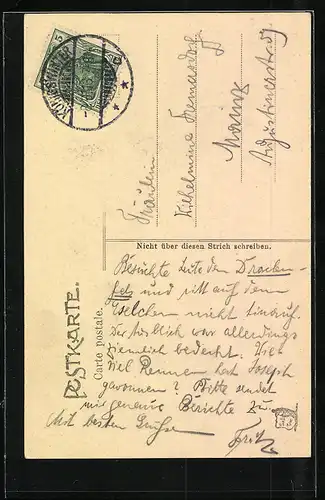 5
KÖNIGSWINTER
Fräulein
Wilhelmine
Mainz
Augustinerstr.
Nicht über diesen Strich schreiben.
POSTKARTE.
Carte postale.
Besuchte heute den Drachen-
fels und ritt auf dem
Eselchen nicht hinauf.
Der war allerdings
ziemlich bedeckt. Wie
viel Rennen hat Joseph
gewonnen? Bitte sendet
mir genaue Berichte
Mit besten Grüßen
Fritz